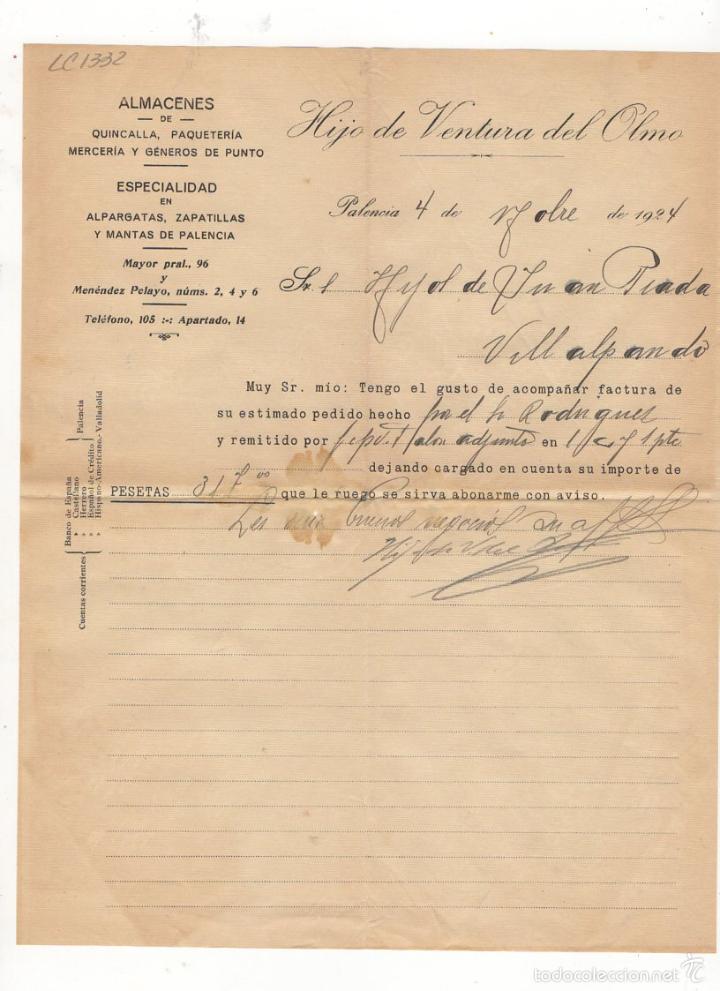 LC1332
ALMACENES
DE
QUINCALLA, PAQUETERÍA
MERCERÍA Y GÉNEROS DE PUNTO
ESPECIALIDAD
EN
ALPARGATAS, ZAPATILLAS
Y MANTAS DE PALENCIA
Mayor pral., 96
y
Menéndez Pelayo, núms. 2, 4 y 6
Teléfono, 105 :-: Apartado, 14
Hijo de Ventura del Olmo
Palencia 4 de de 1924
de Juan Prada
Villalpando
Muy Sr. mío: Tengo el gusto de acompañar factura de
su estimado pedido hecho por el Sr Rodriguez
y remitido por talon adjunto en 1
dejando cargado en cuenta su importe de
PESETAS 317 que le ruego se sirva abonarme con aviso.
buenos negocios
Cuentas corrientes
Banco de España
» Castellano
» Herrero
» Español de Crédito
» Hispano-Americano.-Valladolid
Palencia
todocoleccion.net